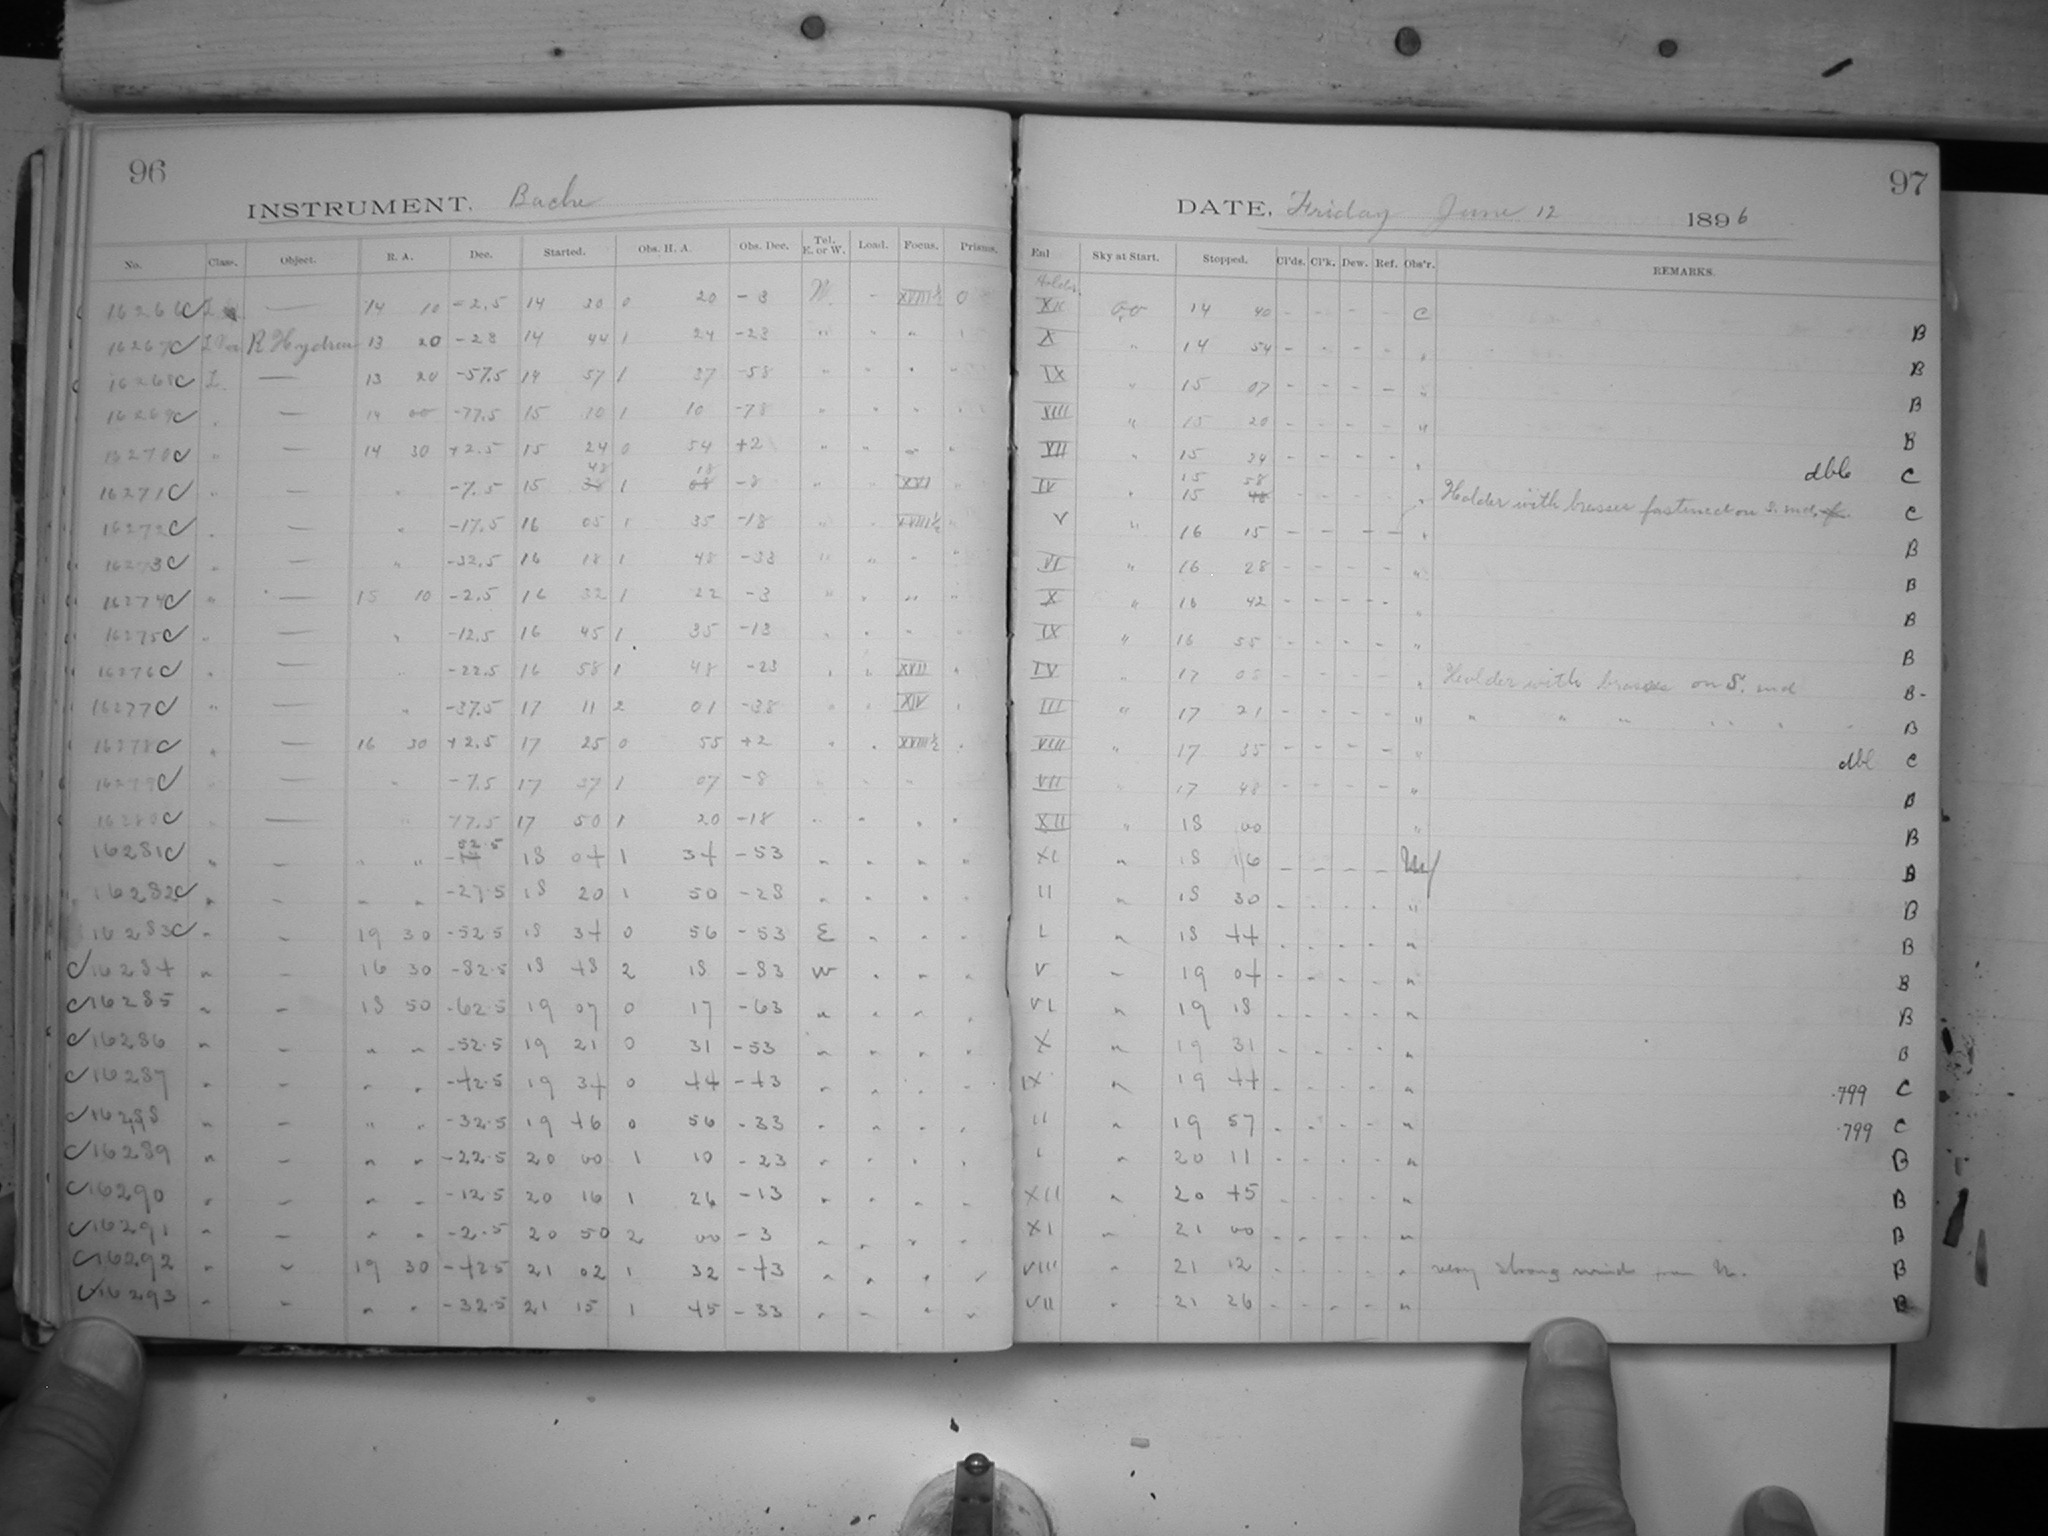 96
INSTRUMENT. Bache
No. Class. Object. R. A. Dec. Started. Obs. H. A. Obs. Dec. Tel. E. or W. Load. Focus. Prisms.
16266 C L — 14 10 -2.5 14 30 0 20 -3 W. - XVIII½ 0
16267 C R Hydrae 13 20 -28 14 44 1 24 -28 " " " "
16268 C L. — 13 20 -57.5 14 57 1 37 -58 " " " "
16269 C " — 14 00 -77.5 15 10 1 10 -78 " " " "
16270 C " — 14 30 +2.5 15 24 0 54 +2 " " " "
16271 C " — " -7.5 15 48 1 18 -8 " " XVI "
16272 C " — " -17.5 16 05 1 35 -18 " " XVIII½ "
16273 C " — " -32.5 16 18 1 48 -33 " " " "
16274 C " — 15 10 -2.5 16 32 1 22 -3 " " " "
16275 C " — " -12.5 16 45 1 35 -13 " " " "
16276 C " — " -22.5 16 58 1 48 -23 " " XVII "
16277 C " — " -37.5 17 11 2 01 -38 " " XIV "
16278 C " — 16 30 +2.5 17 25 0 55 +2 " " XVIII½ "
16279 C " — " -7.5 17 37 1 07 -8 " " " "
16280 C " — " 17.5 17 50 1 20 -18 " " " "
16281 C " " " 52.5 18 04 1 34 -53 " " " "
16282 C " - " " -27.5 18 20 1 50 -28 " " " "
16283 C " - 19 30 -52.5 18 34 0 56 -53 E " " "
C 16284 " - 16 30 -82.5 18 48 2 18 -83 W " " "
C 16285 " - 18 50 -62.5 19 07 0 17 -63 " " " "
C 16286 " - " " -52.5 19 21 0 31 -53 " " " "
C 16287 " - " " -42.5 19 34 0 44 -43 " " " "
C 16288 " - " " -32.5 19 46 0 56 -33 " " " "
C 16289 " - " " -22.5 20 00 1 10 -23 " " " "
C 16290 " - " " -12.5 20 16 1 26 -13 " " " "
C 16291 " - " " -2.5 20 50 2 00 -3 " " " "
C 16292 " - 19 30 -42.5 21 02 1 32 -43 " " " "
C 16293 " - " " -32.5 21 15 1 45 -33 " " " "
97
DATE, Friday June 12 1896
Enl Sky at Start. Stopped. Cl'ds. Cl'k. Dew. Ref. Obs'r. REMARKS.
Holder
XII 14 40 - - - - C
X " 14 54 - - - - " B
IX " 15 07 - - - - " B
VIII " 15 20 - - - - " B
VII " 15 24 - - - - " B
IV " 15 58 15 48 - - - - " Holder with brasses fastened on S. end. dble C
V " 16 15 - - - - " C
VI " 16 28 - - - - " B
X " 16 42 - - - - " B
IX " 16 55 - - - - " B
IV " 17 08 - - - - " Holder with brasses on S. end B
III " 17 21 - - - - " " " " " " " B-
VIII " 17 35 - - - - " B
VII " 17 48 - - - - " dbl C
XII " 18 00 " B
XI " 18 16 - - - - B
II " 18 30 - - - - " B
I " 18 44 - - - - " B
V " 19 04 - - - - " B
VI " 19 18 - - - - " B
X " 19 31 - - - - " B
IX " 19 44 - - - - " B
II " 19 57 - - - - " .799 C
I " 20 11 - - - - " .799 C
XII " 20 45 - - - - " B
XI " 21 00 - - - - " B
VIII " 21 12 - - - - " very strong wind from N. B
VII " 21 26 - - - - " B